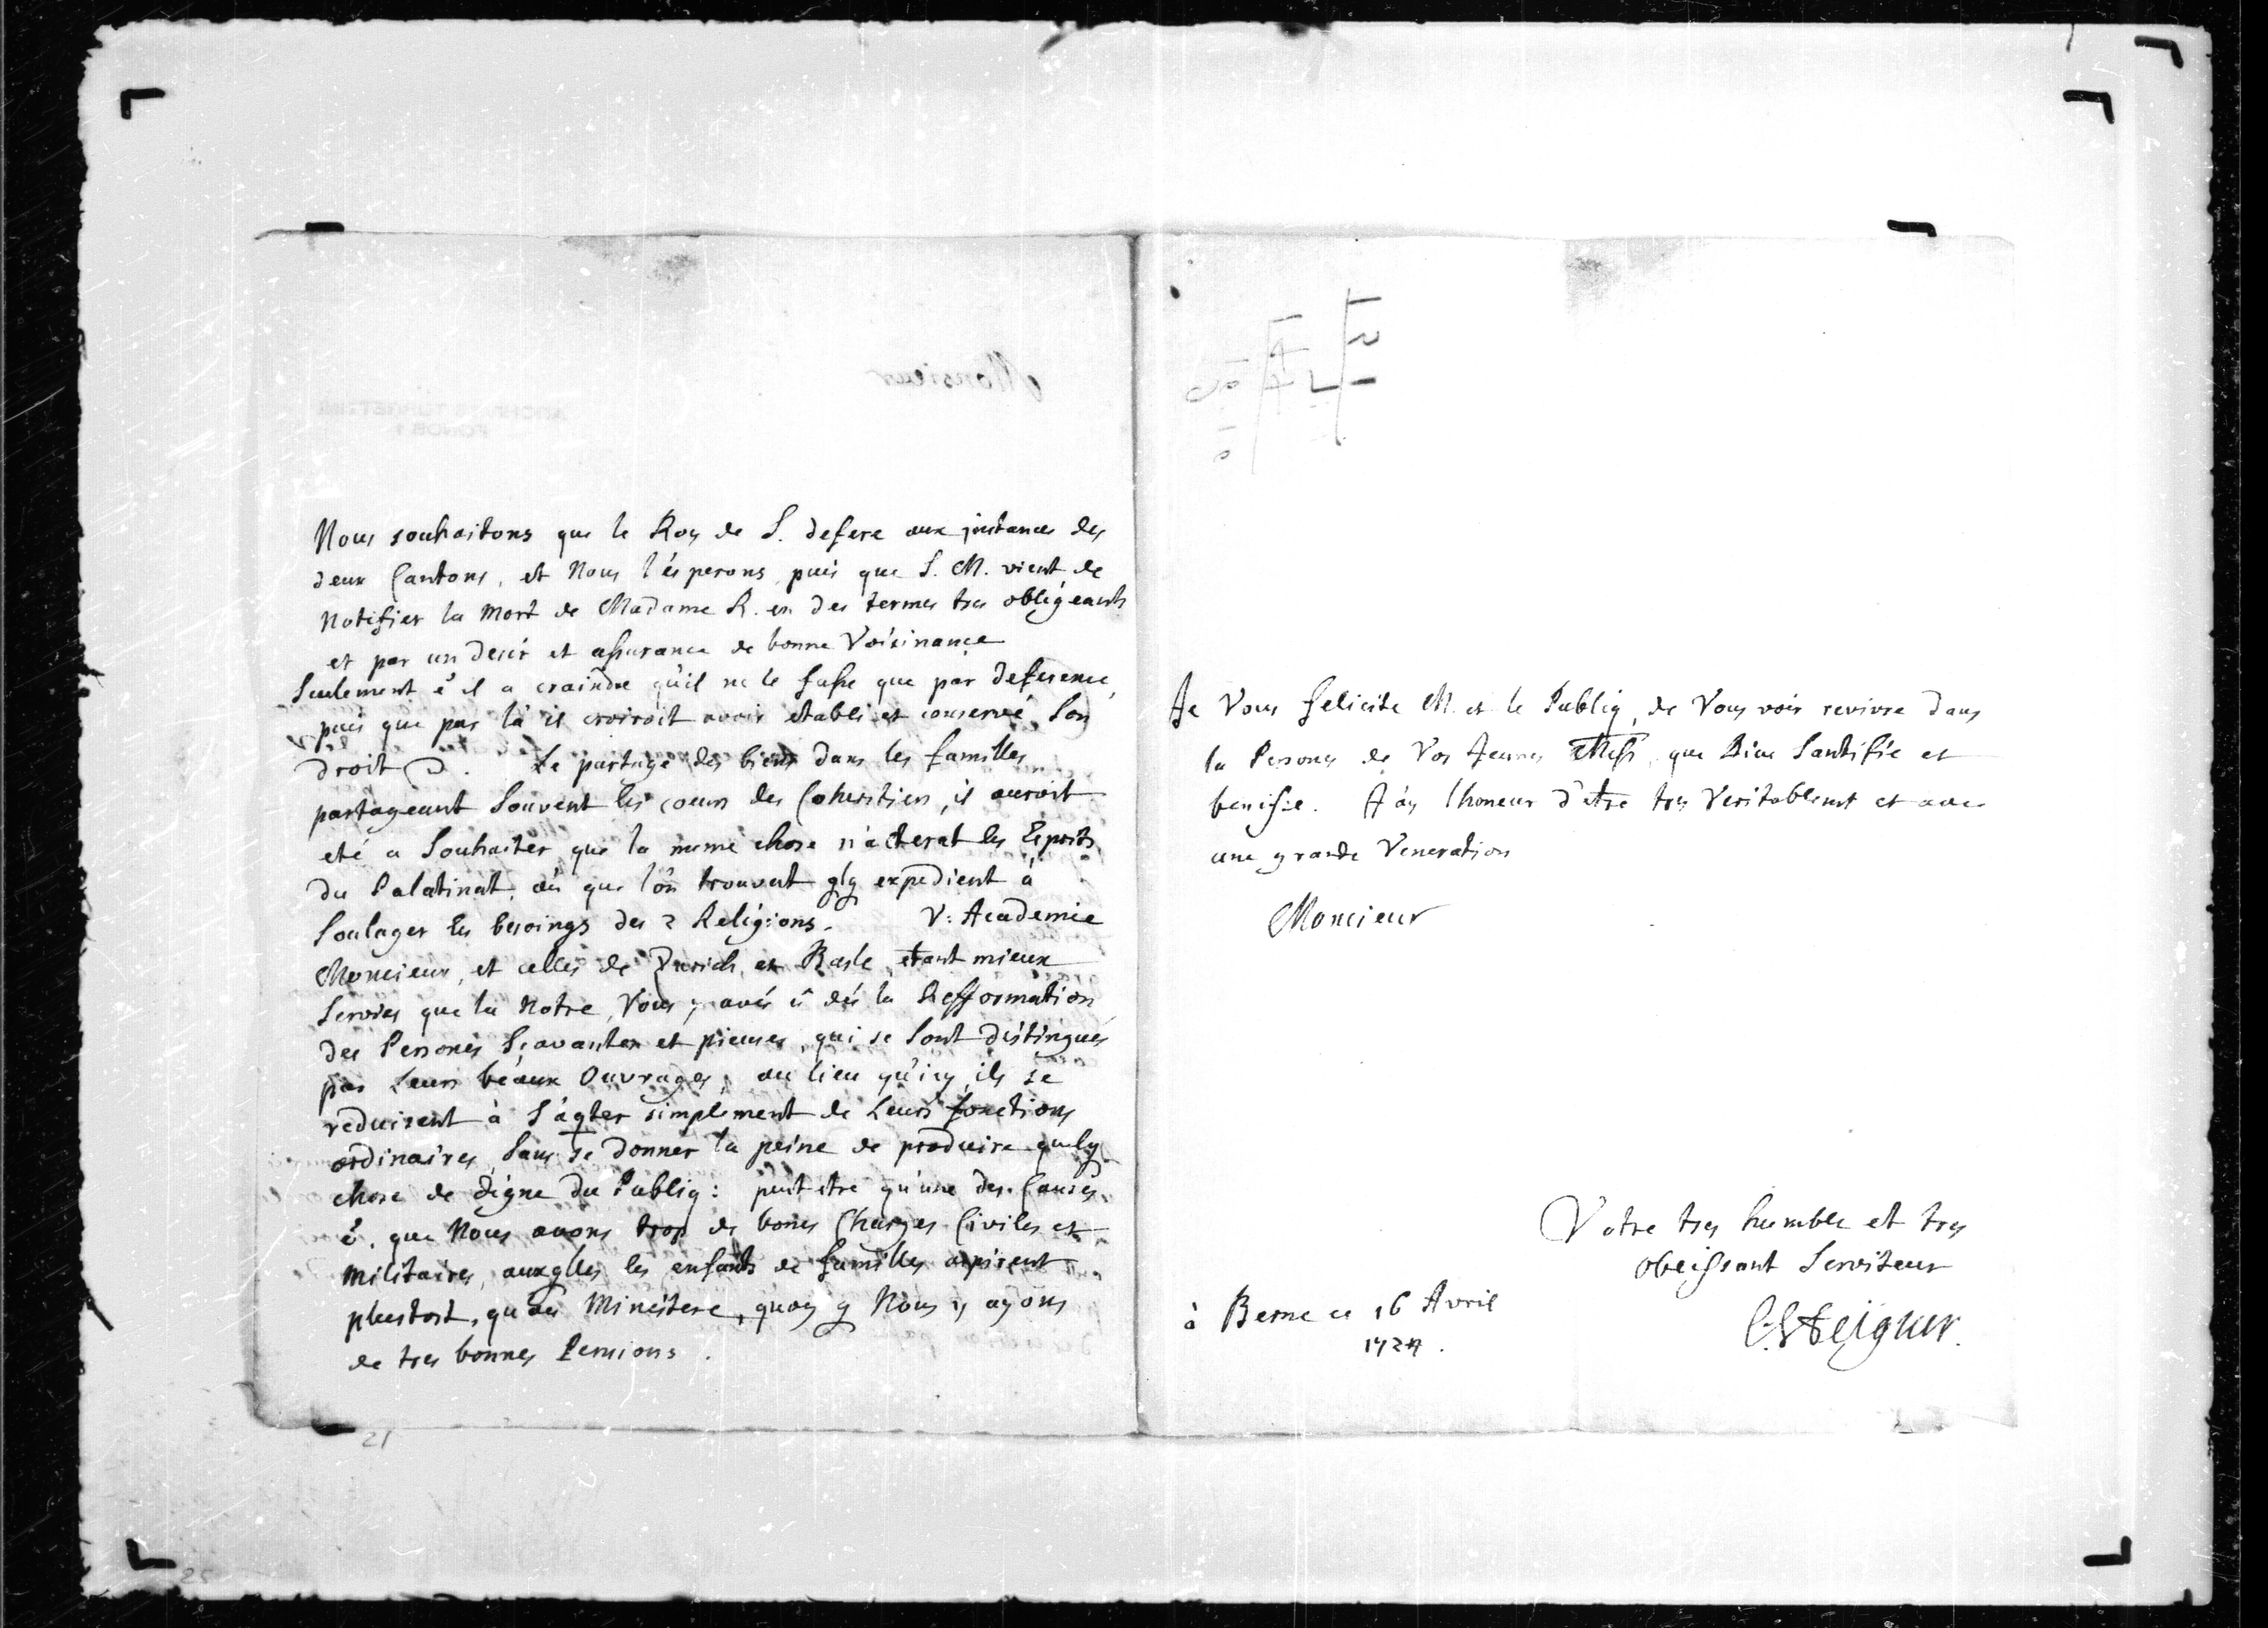 Nous souhaitons que le Roy de S. defere aux instances des
deux Cantons, et Nous l'ésperons puis que S. M. vient de
Notifier la Mort de Madame R. en des termes tres obligeants
et par un desir et assurance de bonne Voisinance
Seulement é il a craindre qu'il ne le fasse que par deference,
puis que par là il croiroit avoir etabli et conservé Son
droit. Le partage des biens dans les familles
partageant Souvent les coeurs des Coheritiers, il auroit
eté a Souhaiter que la meme chose les Esprits
du Palatinat, où que l'on trouvent qlq expedient à
Soulager les besoings des 2 Religions. V: Academie
Monsieur, et celles de Zurich et Basle etant mieux
Servies que la Notre, Vous y avés û dés la Refformation
des Persones Sçavantes et pieuses, qui se Sont distingués
par Leurs beaux Ouvrages, au lieu qu'icy ils se
reduisent à S'aqter simplement de Leurs fonctions
ordinaires, Sans se donner la peine de produire quelq
chose de digne du Publiq: peut etre qu'une des Causes
é, que Nous avons trop de bones Charges Civiles et
Militaires, auxqlles les enfants de familles aspirent
plustost, qu'au Ministere, quoy q Nous y ayons
de tres bonnes Pensions.
Je Vous felicite M. et le Publiq, de Vous voir revivre dans
la Persone de Vos Jeunes Messrs que Dieu Santifie et
benisse. J'ay lhoneur d'etre tres Veritablemt et avec
une grande Veneration
Monsieur
Votre tres humble et tres
obeissant Serviteur
à Berne ce 16 Avril
1724.
C. Steiguer.
21
25